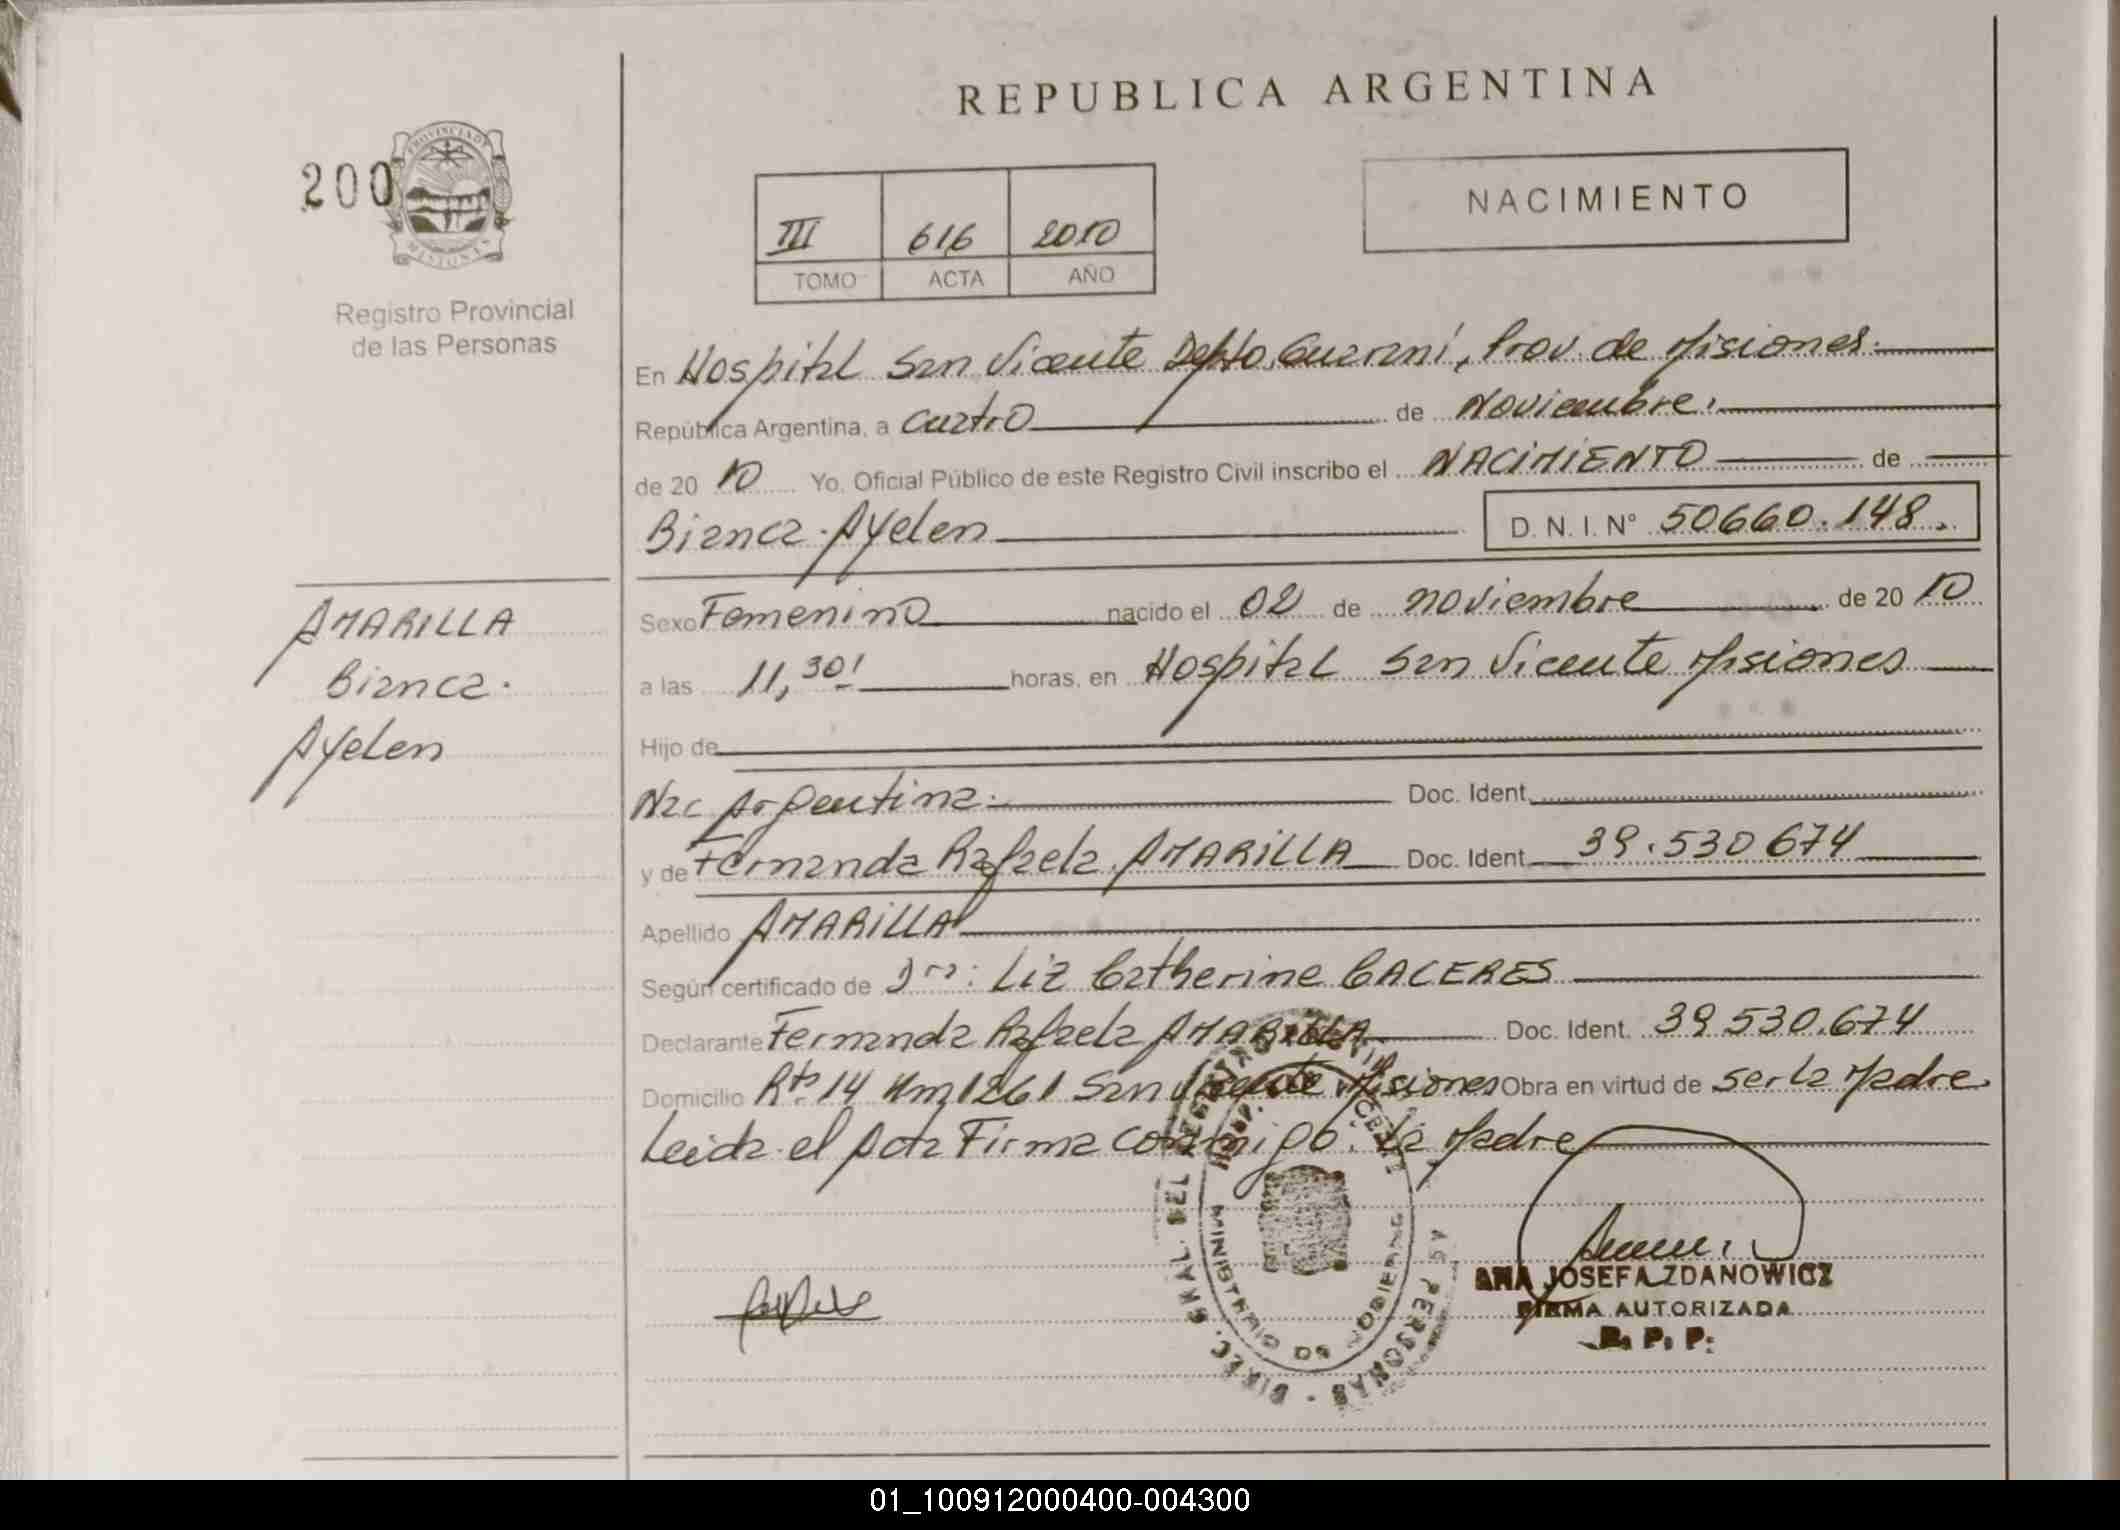 REPUBLICA ARGENTINA
200
PROVINCIA DE
MISIONES
Registro Provincial
de las Personas
III 616 2010
TOMO ACTA AÑO
NACIMIENTO
En Hospital San Vicente Depto. Guaraní, Prov. de Misiones.
República Argentina, a cuatro de Noviembre.
de 20 10 Yo, Oficial Público de este Registro Civil inscribo el NACIMIENTO de
Bianca Ayelen D. N. I. N° 50660.148.
AMARILLA
Bianca.
Ayelen
Sexo Femenino nacido el 02 de noviembre de 20 10
a las 11,30' horas, en Hospital San Vicente Misiones
Hijo de
Nac Argentina. Doc. Ident.
y de Fernanda Rafaela AMARILLA Doc. Ident. 39.530674
Apellido AMARILLA
Según certificado de Dra: Liz Catherine CACERES
Declarante Fernanda Rafaela AMARILLA Doc. Ident. 39530.674
Domicilio Rta. 14 Km 1261 San Vicente Misiones Obra en virtud de ser la Madre.
Leida el Acta Firma conmigo. La Madre
DIREC. GRAL. DEL REGISTRO PERSONAS
MINISTERIO DE GOBIERNO
ANA JOSEFA ZDANOWICZ
FIRMA AUTORIZADA
R. P. P.
01_100912000400-004300